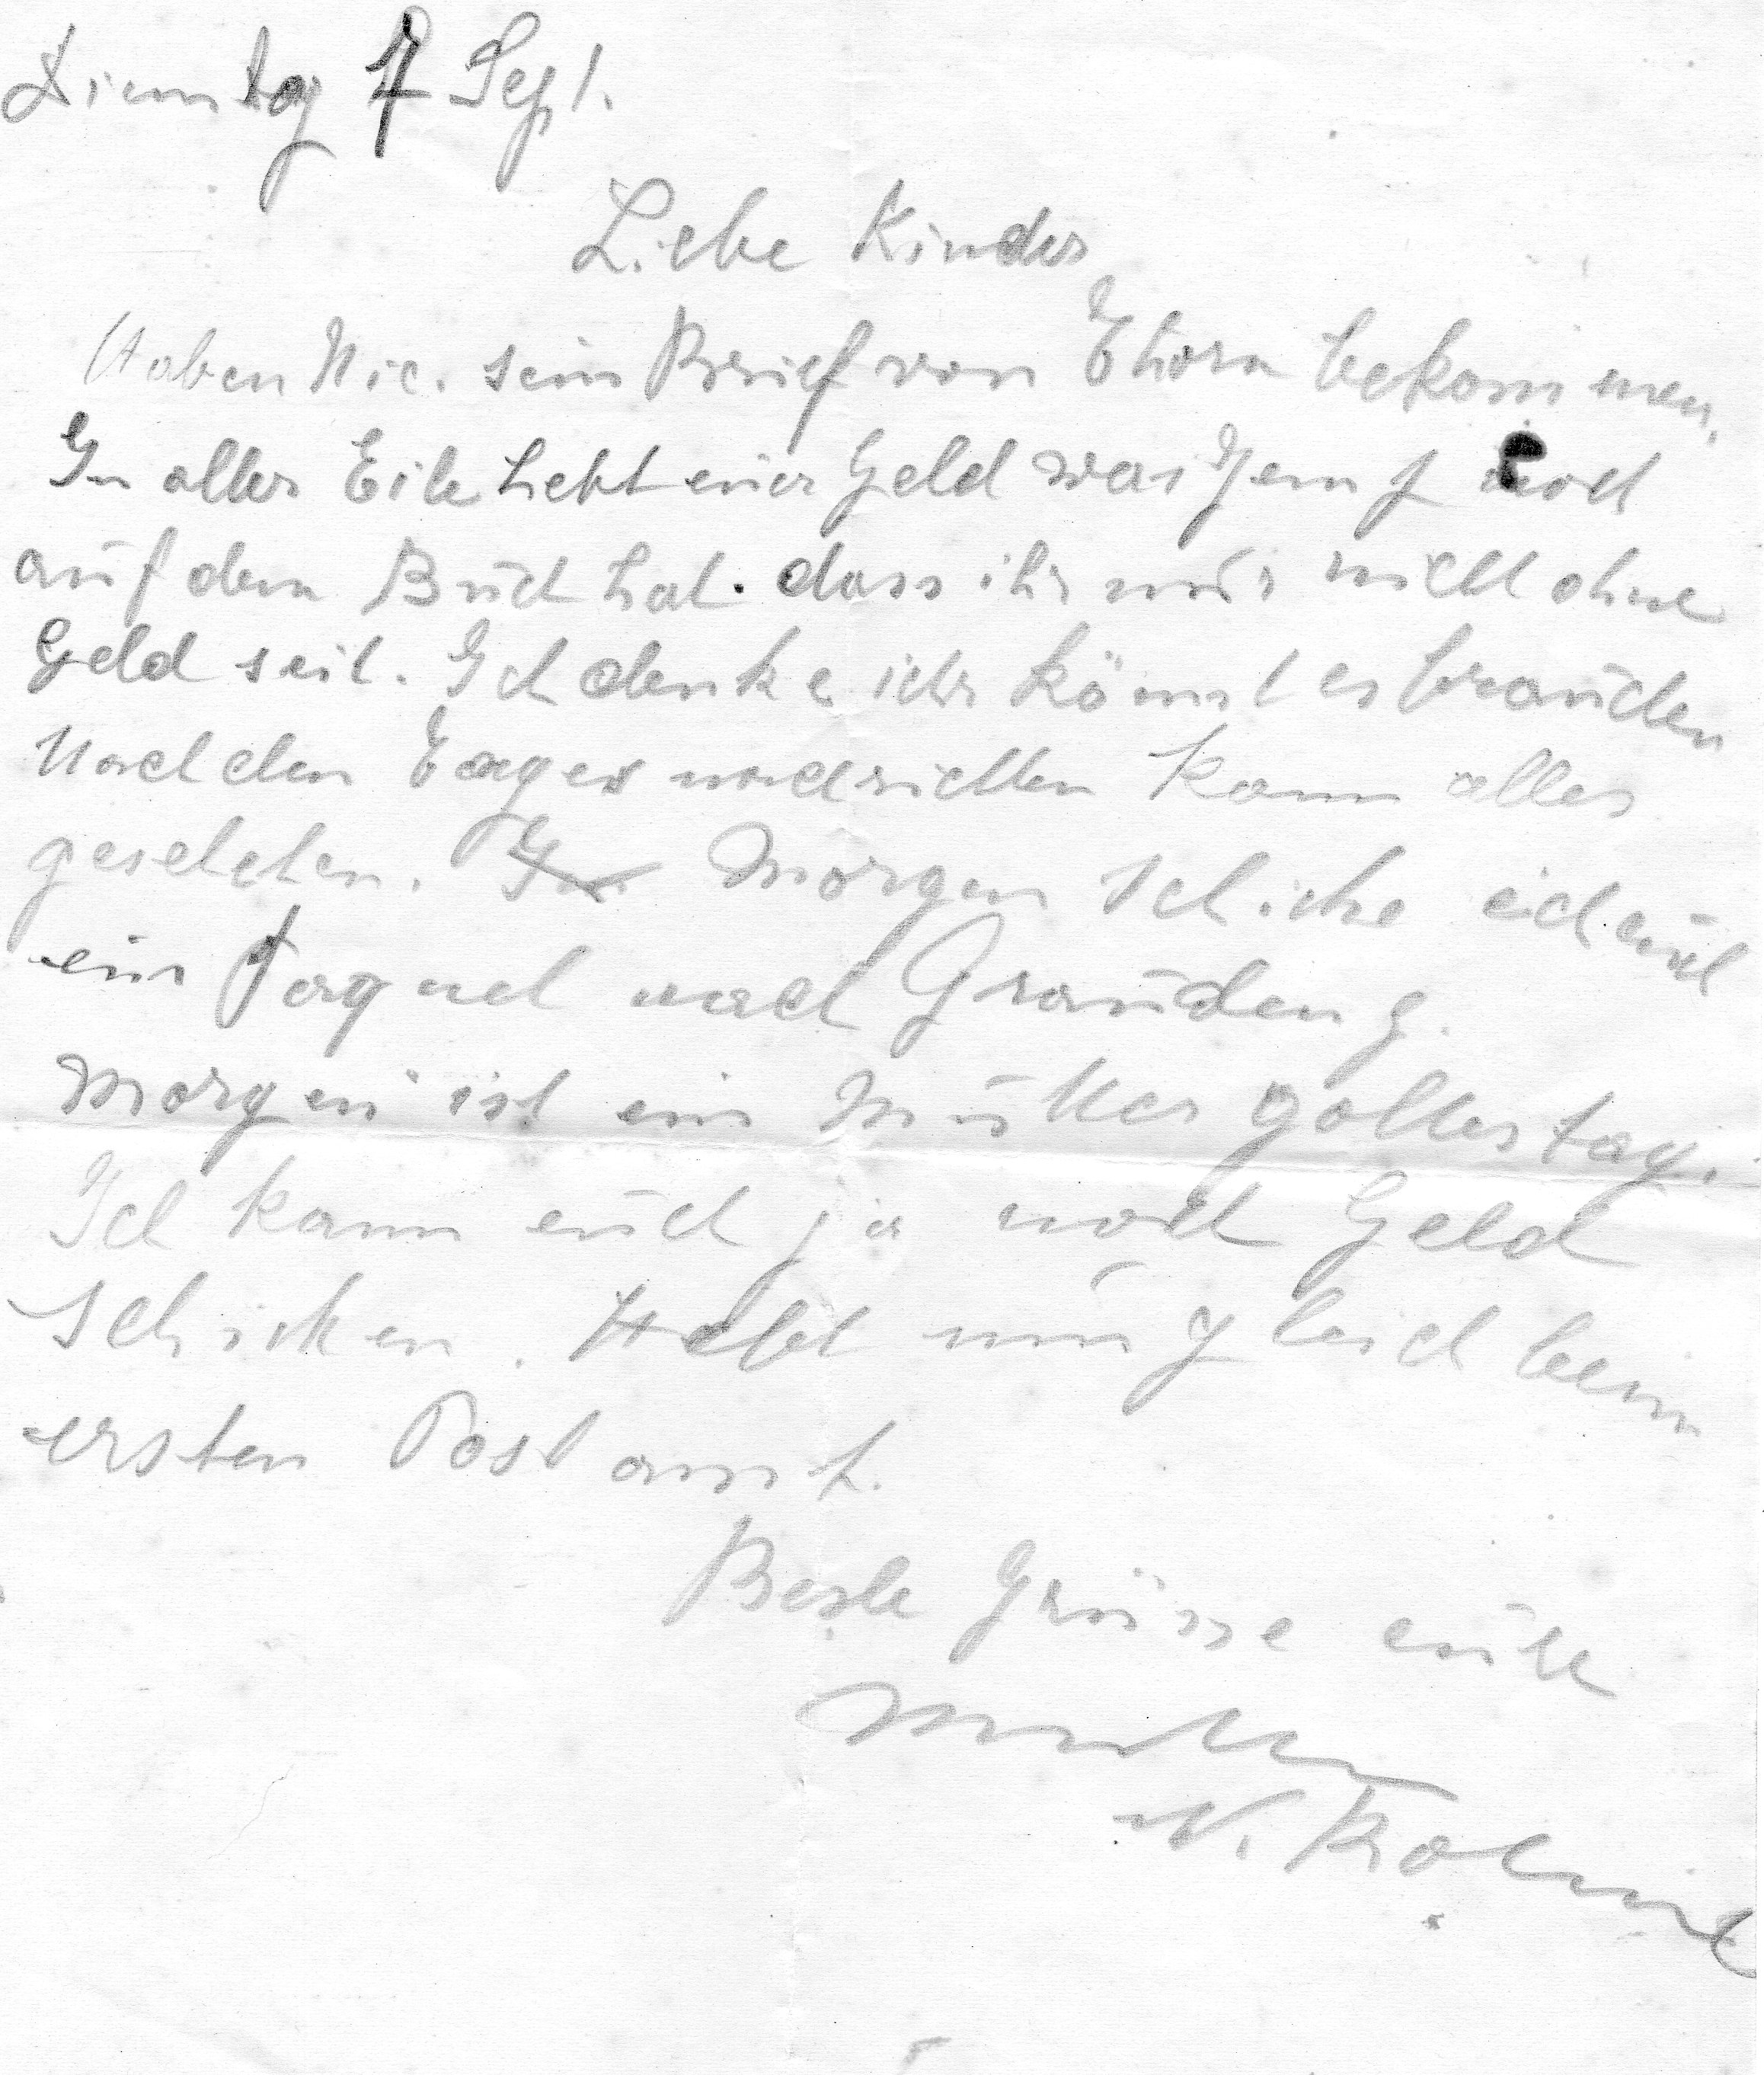 Dienstag 7 Sept.
Liebe Kinder
Haben Nic. sein Brief von Thorn bekommen.
In aller Eile hebt euer Geld was Jemp noch
auf dem Buch hat. dass ihr mir nicht ohne
Geld seit. Ich denke ihr könnt es brauchen
Nach den Tages nachrichten kann alles
geschehen. Morgen schicke ich auch
ein Paquet nach Graudenz.
Morgen ist ein Muttergottestag.
Ich kann euch ja noch Geld
schicken. Hebt nun gleich beim
ersten Postamt.
Beste Grüsse eure
Mutter